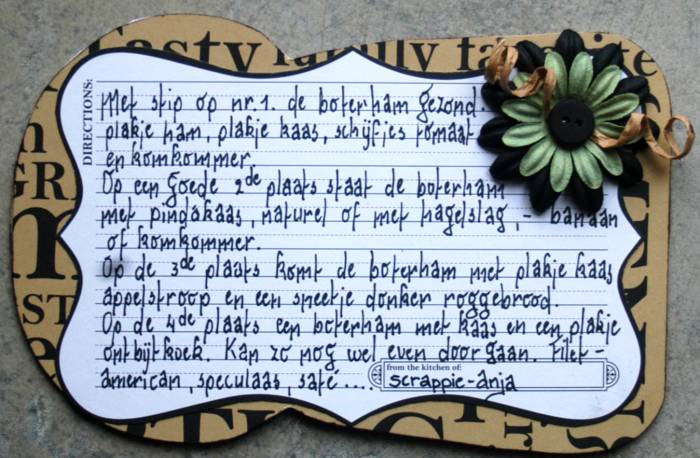 Tasty family favorite
DIRECTIONS:
Met stip op nr. 1. de boterham gezond.
plakje ham, plakje kaas, schijfjes tomaat
en komkommer.
Op een Goede 2de plaats staat de boterham
met pindakaas, naturel of met hagelslag, - banaan
of komkommer.
Op de 3de plaats komt de boterham met plakje kaas
appelstroop en een sneetje donker roggebrood.
Op de 4de plaats een boterham met kaas en een plakje
ontbijtkoek. Kan zo nog wel even doorgaan. Filet-
american, speculaas, saté....
from the kitchen of:
scrappie-anja